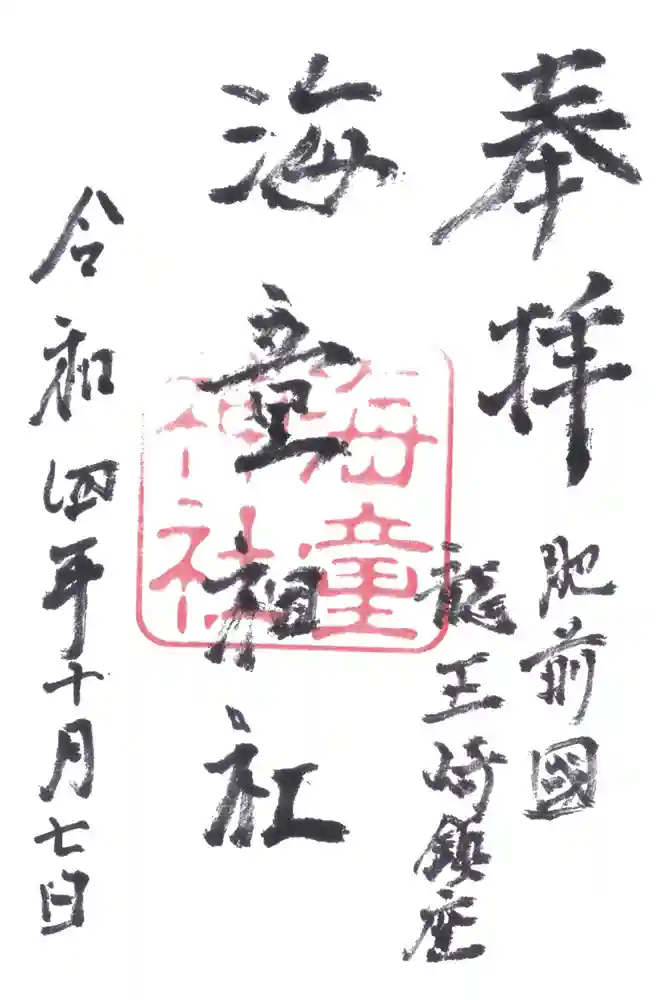 奉拝
肥前國
龍王崎鎮座
海童神社
海童
神社
令和四年十月七日